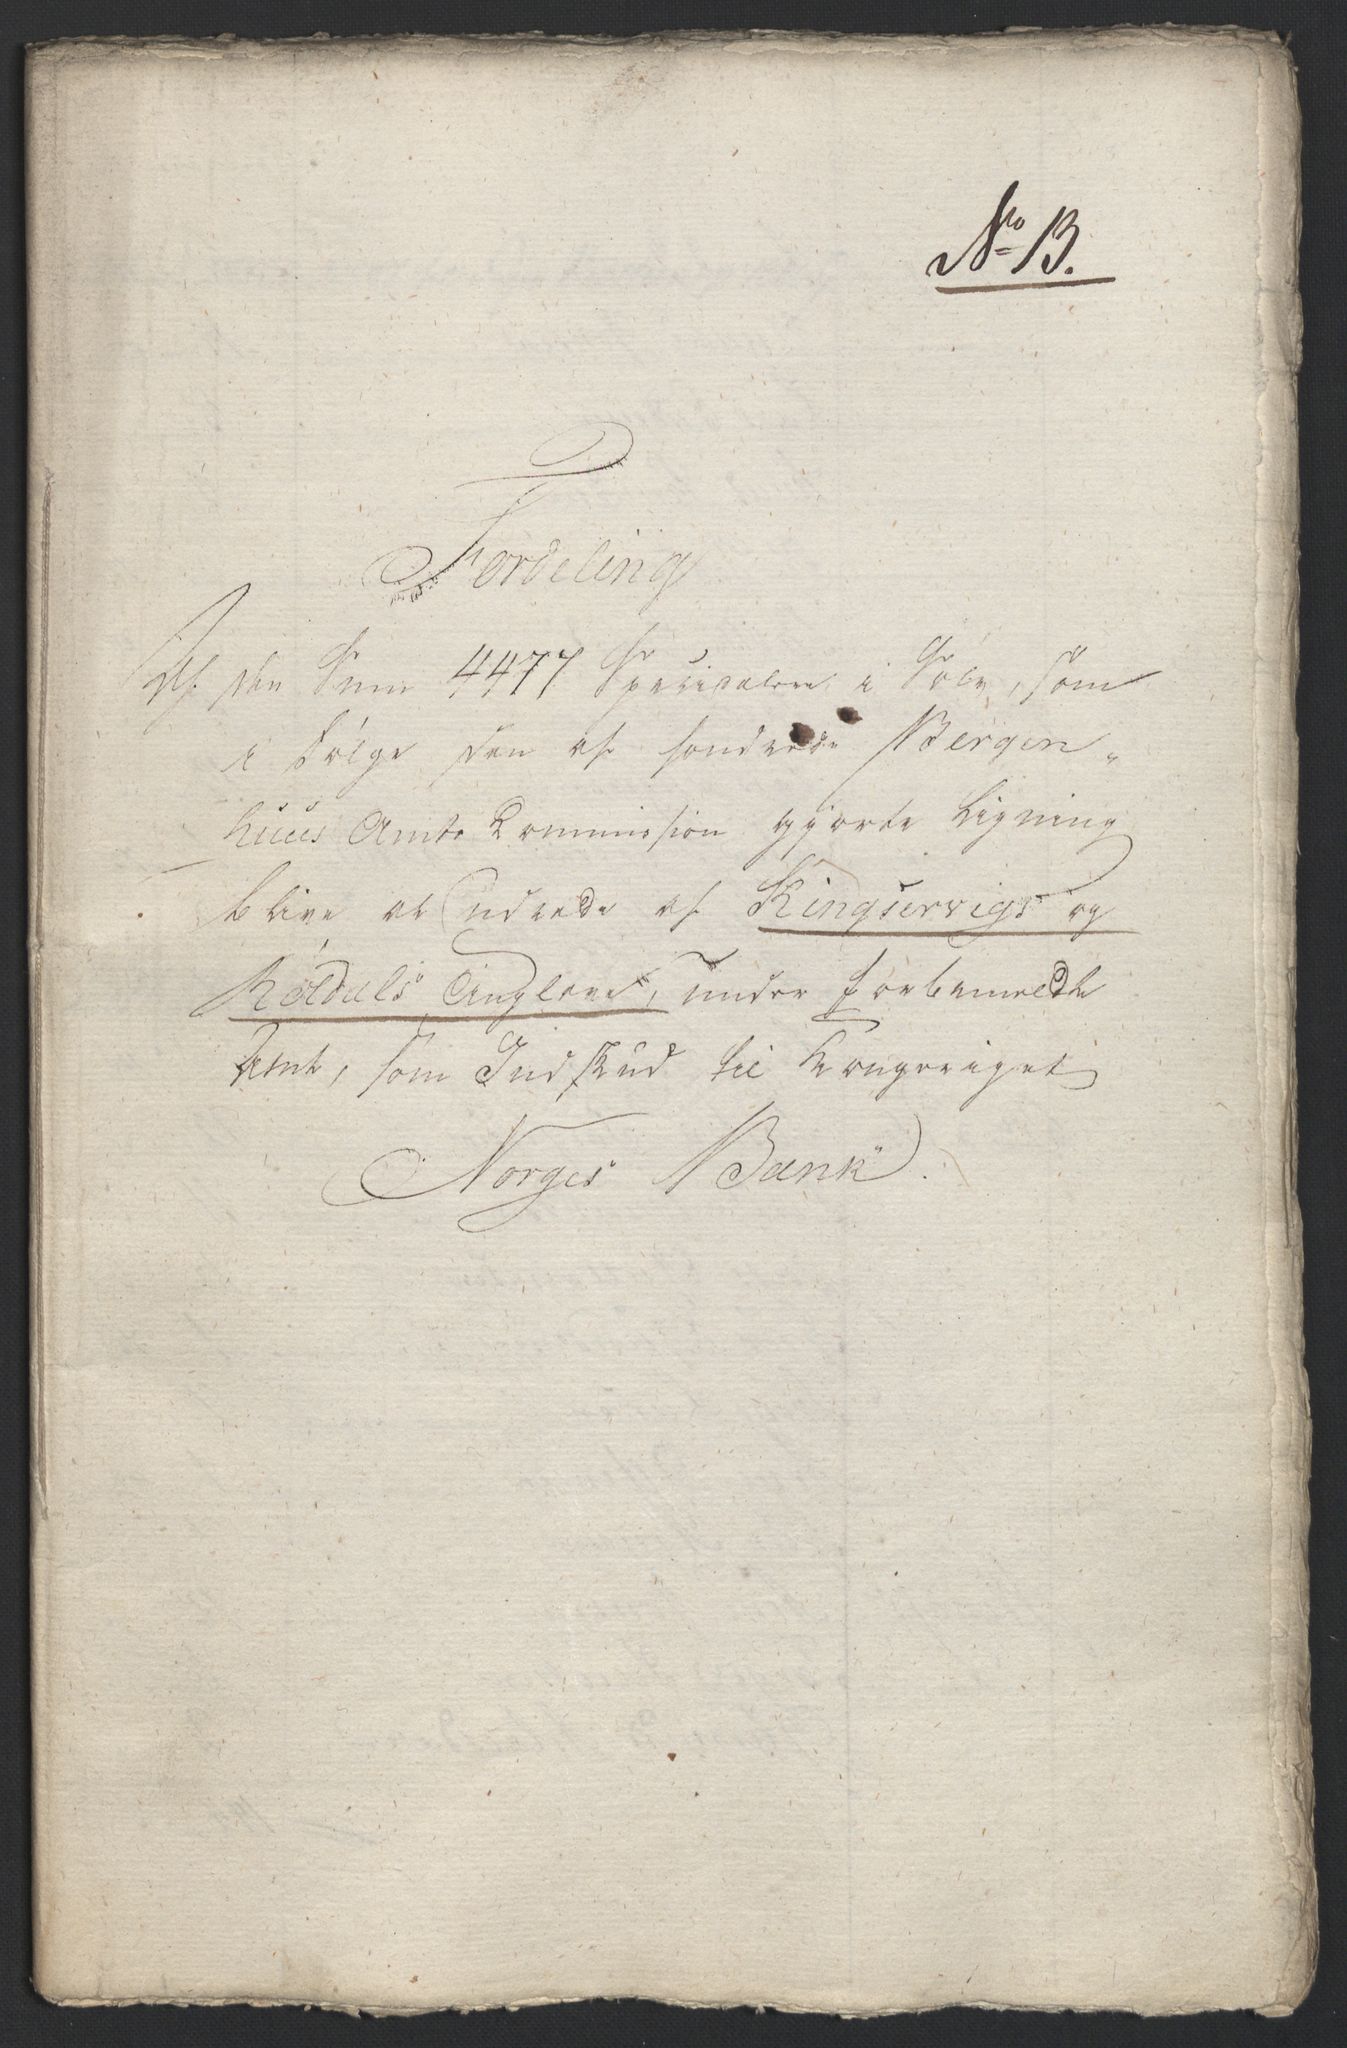 No 13.
Fordeling
Af den Sum 4477 Speciedalere i Sölv, som
i Fölge den af Søndre Bergen-
huus Amts Commission gjorte Ligning
blive at udrede af Kingservigs og
Röldals Tinglave, under forbemeldte
Amt, som Indskud til Kongeriget
Norges Bank.